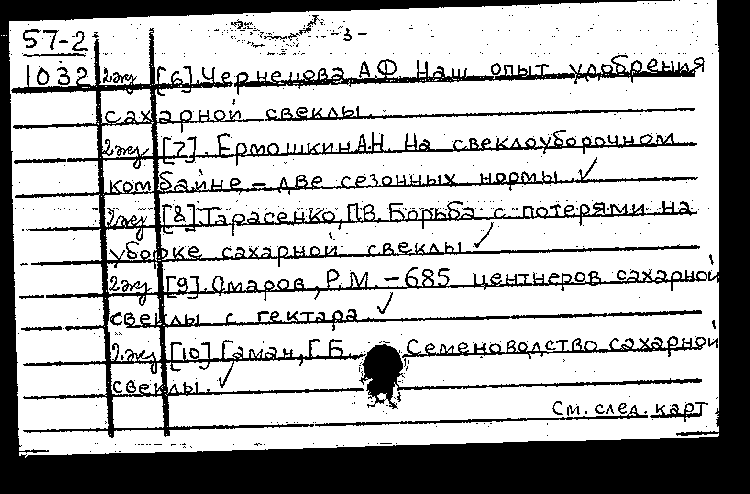 57-2 -3-
1032 2эку [6]. Чернецова, А.Ф. Наш опыт удобрения
сахарной свеклы.
2эку [7]. Ермошкин А.Н. На свеклоуборочном
комбайне – две сезонных нормы ✓
2эку [8]. Тарасенко, П.В. Борьба с потерями на
уборке сахарной свеклы ✓
2эку [9]. Омаров, Р.М. – 685 центнеров сахарной
свеклы с гектара. ✓
2эку [10] Гаман, Г.Б. Семеноводство сахарной
свеклы. ✓
См. след. карт